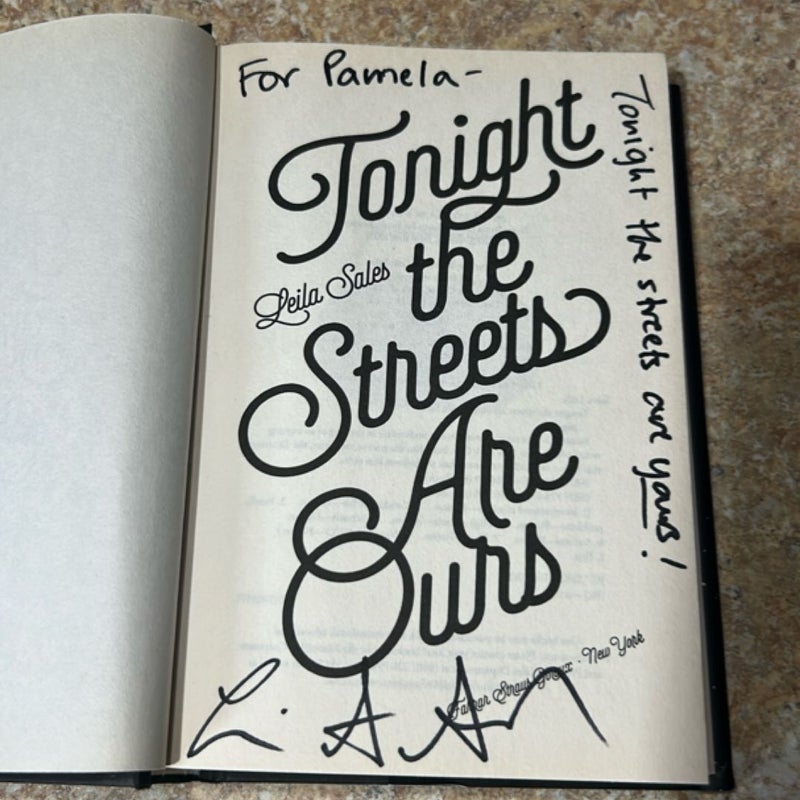 For Pamela-
Tonight
the
Leila Sales
Streets
Are
Ours
Farrar Straus Giroux · New York
Tonight the streets are yours!